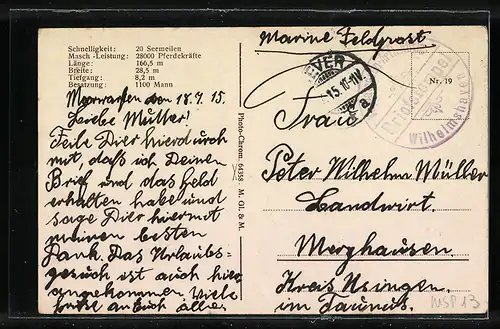 Schnelligkeit: 20 Seemeilen
Masch-Leistung: 28000 Pferdekräfte
Länge: 166,5 m
Breite: 28,5 m
Tiefgang: 8,2 m
Besatzung: 1100 Mann
den 18.7.15.
Liebe Mutter!
Teile Dier hierdurch
mit, daß ich Deinen
Brief und das Geld
erhalten habe und
sage Dier hiermit
meinen besten
Dank. Das Urlaubs=
gesuch ist auch hier
angekommen. Viele
Grüße an Euch alle
Photo-Chrom. 64358. M. Gl. & M.
Marine Feldpost
JEVER
15. 10-11V
a
Wilhelmshaven
Nr. 19
Frau
Peter Wilhelm Müller
Landwirt.
Merzhausen
Kreis Usingen
im Taunus.
MSP 13